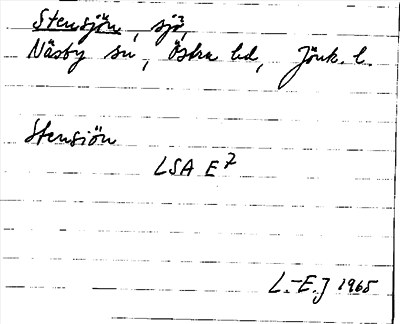 Stensjön, sjö,
Näsby sn, Östra hd, Jönk. l.
Stensiön
LSA E7
L.-E.J 1965